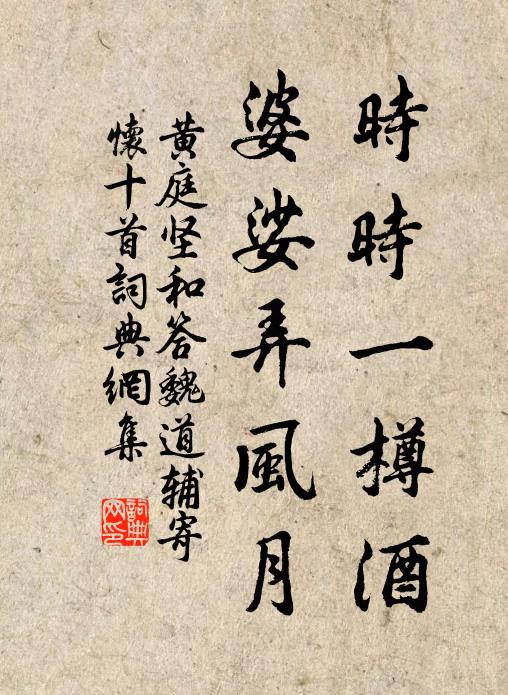 時時一樽酒
婆娑弄風月
黄庭坚和答魏道辅寄
懷十首詞典網集
詞典
网印